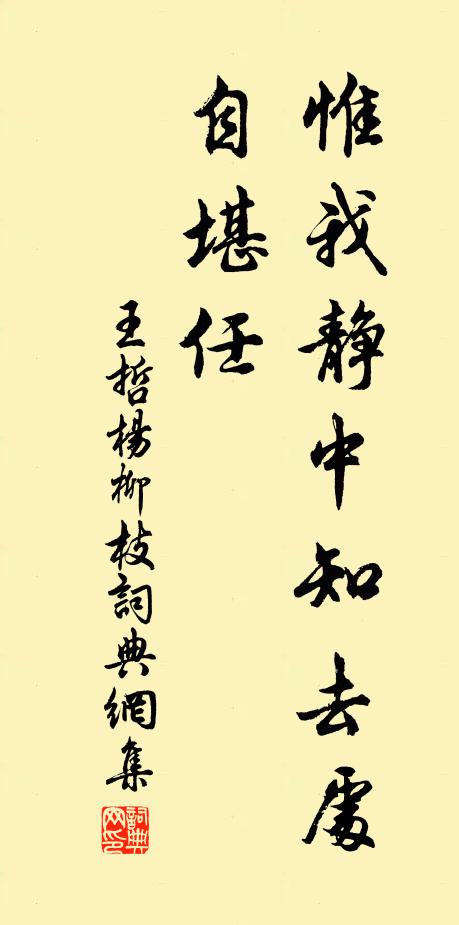 惟我静中知去處
自堪任
王哲楊柳枝詞典網集
詞典网印